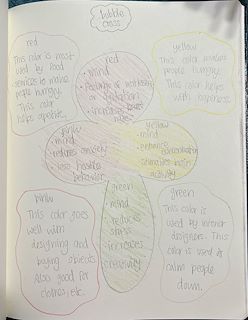 bubble
class
red
This color is most
used by food
services to make
people hungry.
This color
helps appetite.
yellow
This color makes
people hungry.
This color helps
with happiness
red
• mind
• feelings of
• increases
pink
• mind
• reduces anxiety
• less hostile
behavior
yellow
• mind
• enhances concentration
stimulates brain
activity
green
• mind
• reduces
stress
• increases
creativity
pink
This color goes
well with
designing and
buying objects
Also good for
clothes, etc.
green
This color is
used by interior
designers. This
color is used to
calm people
down.